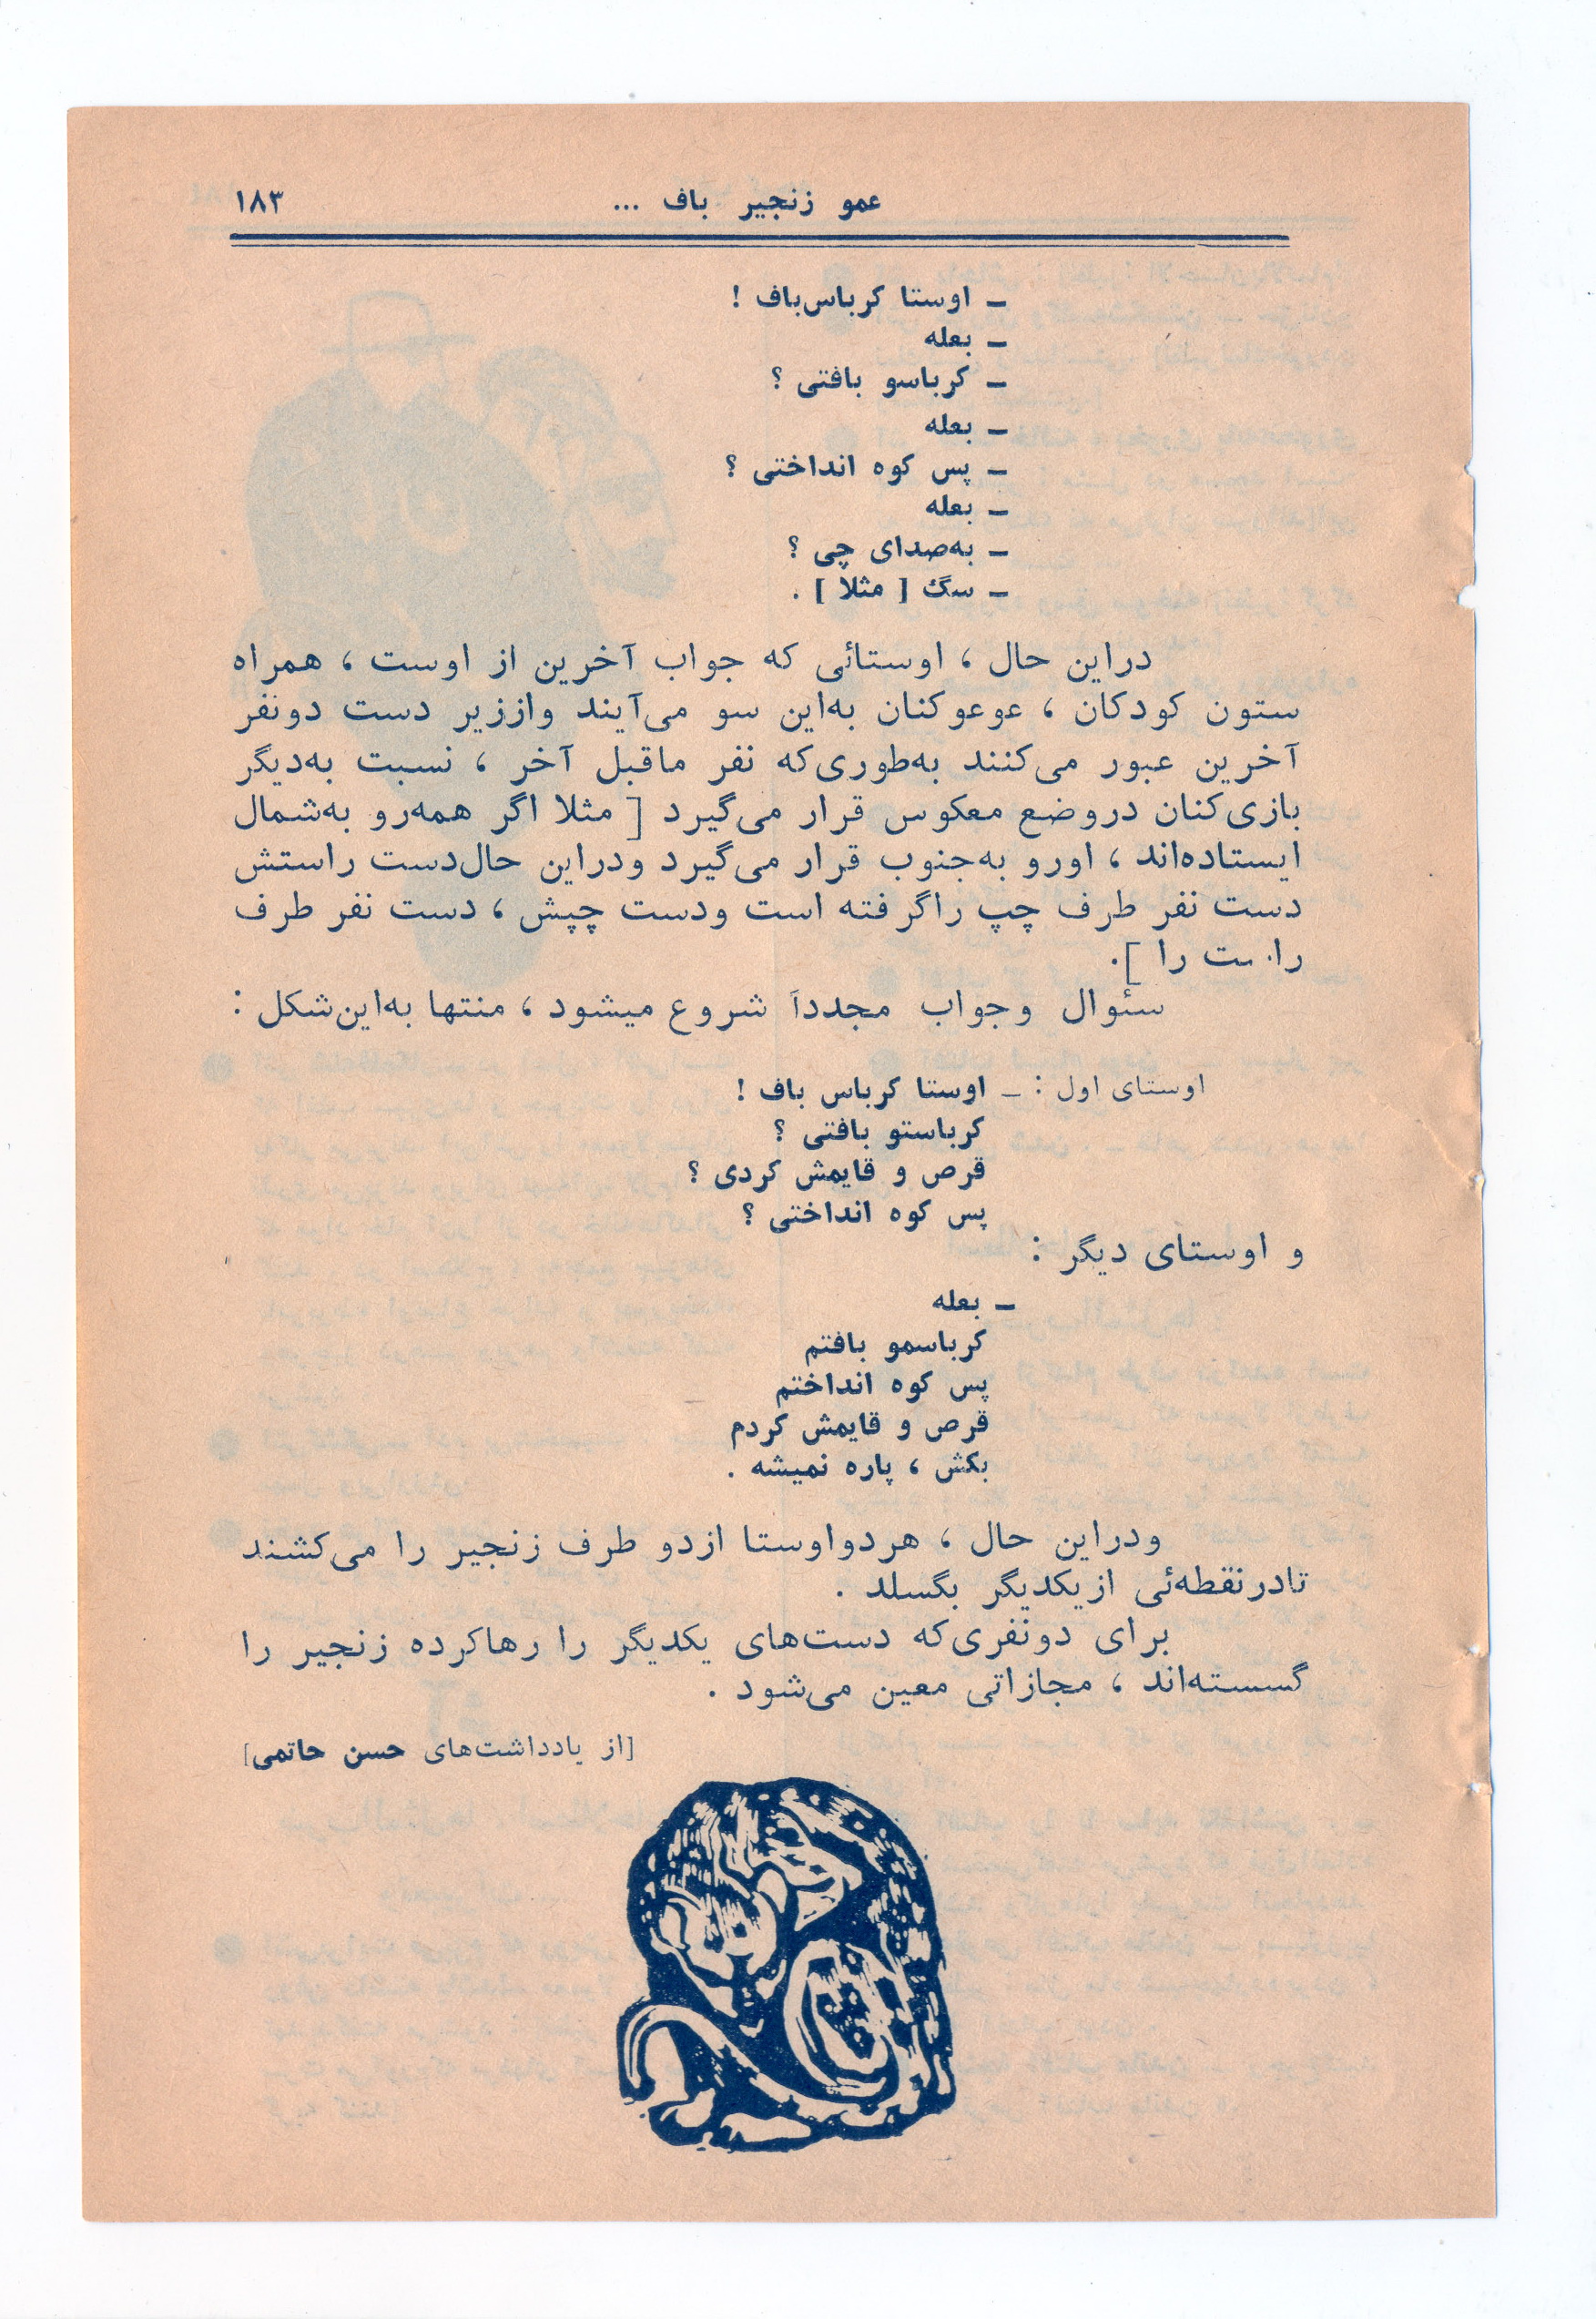 عمو زنجیر باف ... ۱۸۳
ـ اوستا کرباس‌باف !
ـ بعله
ـ کرباسو بافتی ؟
ـ بعله
ـ پس کوه انداختی ؟
ـ بعله
ـ به‌صدای چی ؟
ـ سگ [ مثلا ] .
دراین حال ، اوستائی که جواب آخرین از اوست ، همراه
ستون کودکان ، عوعوکنان به‌این سو می‌آیند واززیر دست دونفر
آخرین عبور می‌کنند به‌طوری‌که نفر ماقبل آخر ، نسبت به‌دیگر
بازی‌کنان دروضع معکوس قرار می‌گیرد [ مثلا اگر همه‌رو به‌شمال
ایستاده‌اند ، اورو به‌جنوب قرار می‌گیرد ودراین حال‌دست راستش
دست نفر طرف چپ راگرفته است ودست چپش ، دست نفر طرف
راست را ].
سئوال وجواب مجدداً شروع میشود ، منتها به‌این‌شکل :
اوستای اول : ـ اوستا کرباس باف !
کرباستو بافتی ؟
قرص و قایمش کردی ؟
پس کوه انداختی ؟
و اوستای دیگر :
ـ بعله
کرباسمو بافتم
پس کوه انداختم
قرص و قایمش کردم
بکش ، پاره نمیشه .
ودراین حال ، هردواوستا ازدو طرف زنجیر را می‌کشند
تادرنقطه‌ئی ازیکدیگر بگسلد .
برای دونفری‌که دست‌های یکدیگر را رهاکرده زنجیر را
گسسته‌اند ، مجازاتی معین می‌شود .
[از یادداشت‌های حسن حاتمی]